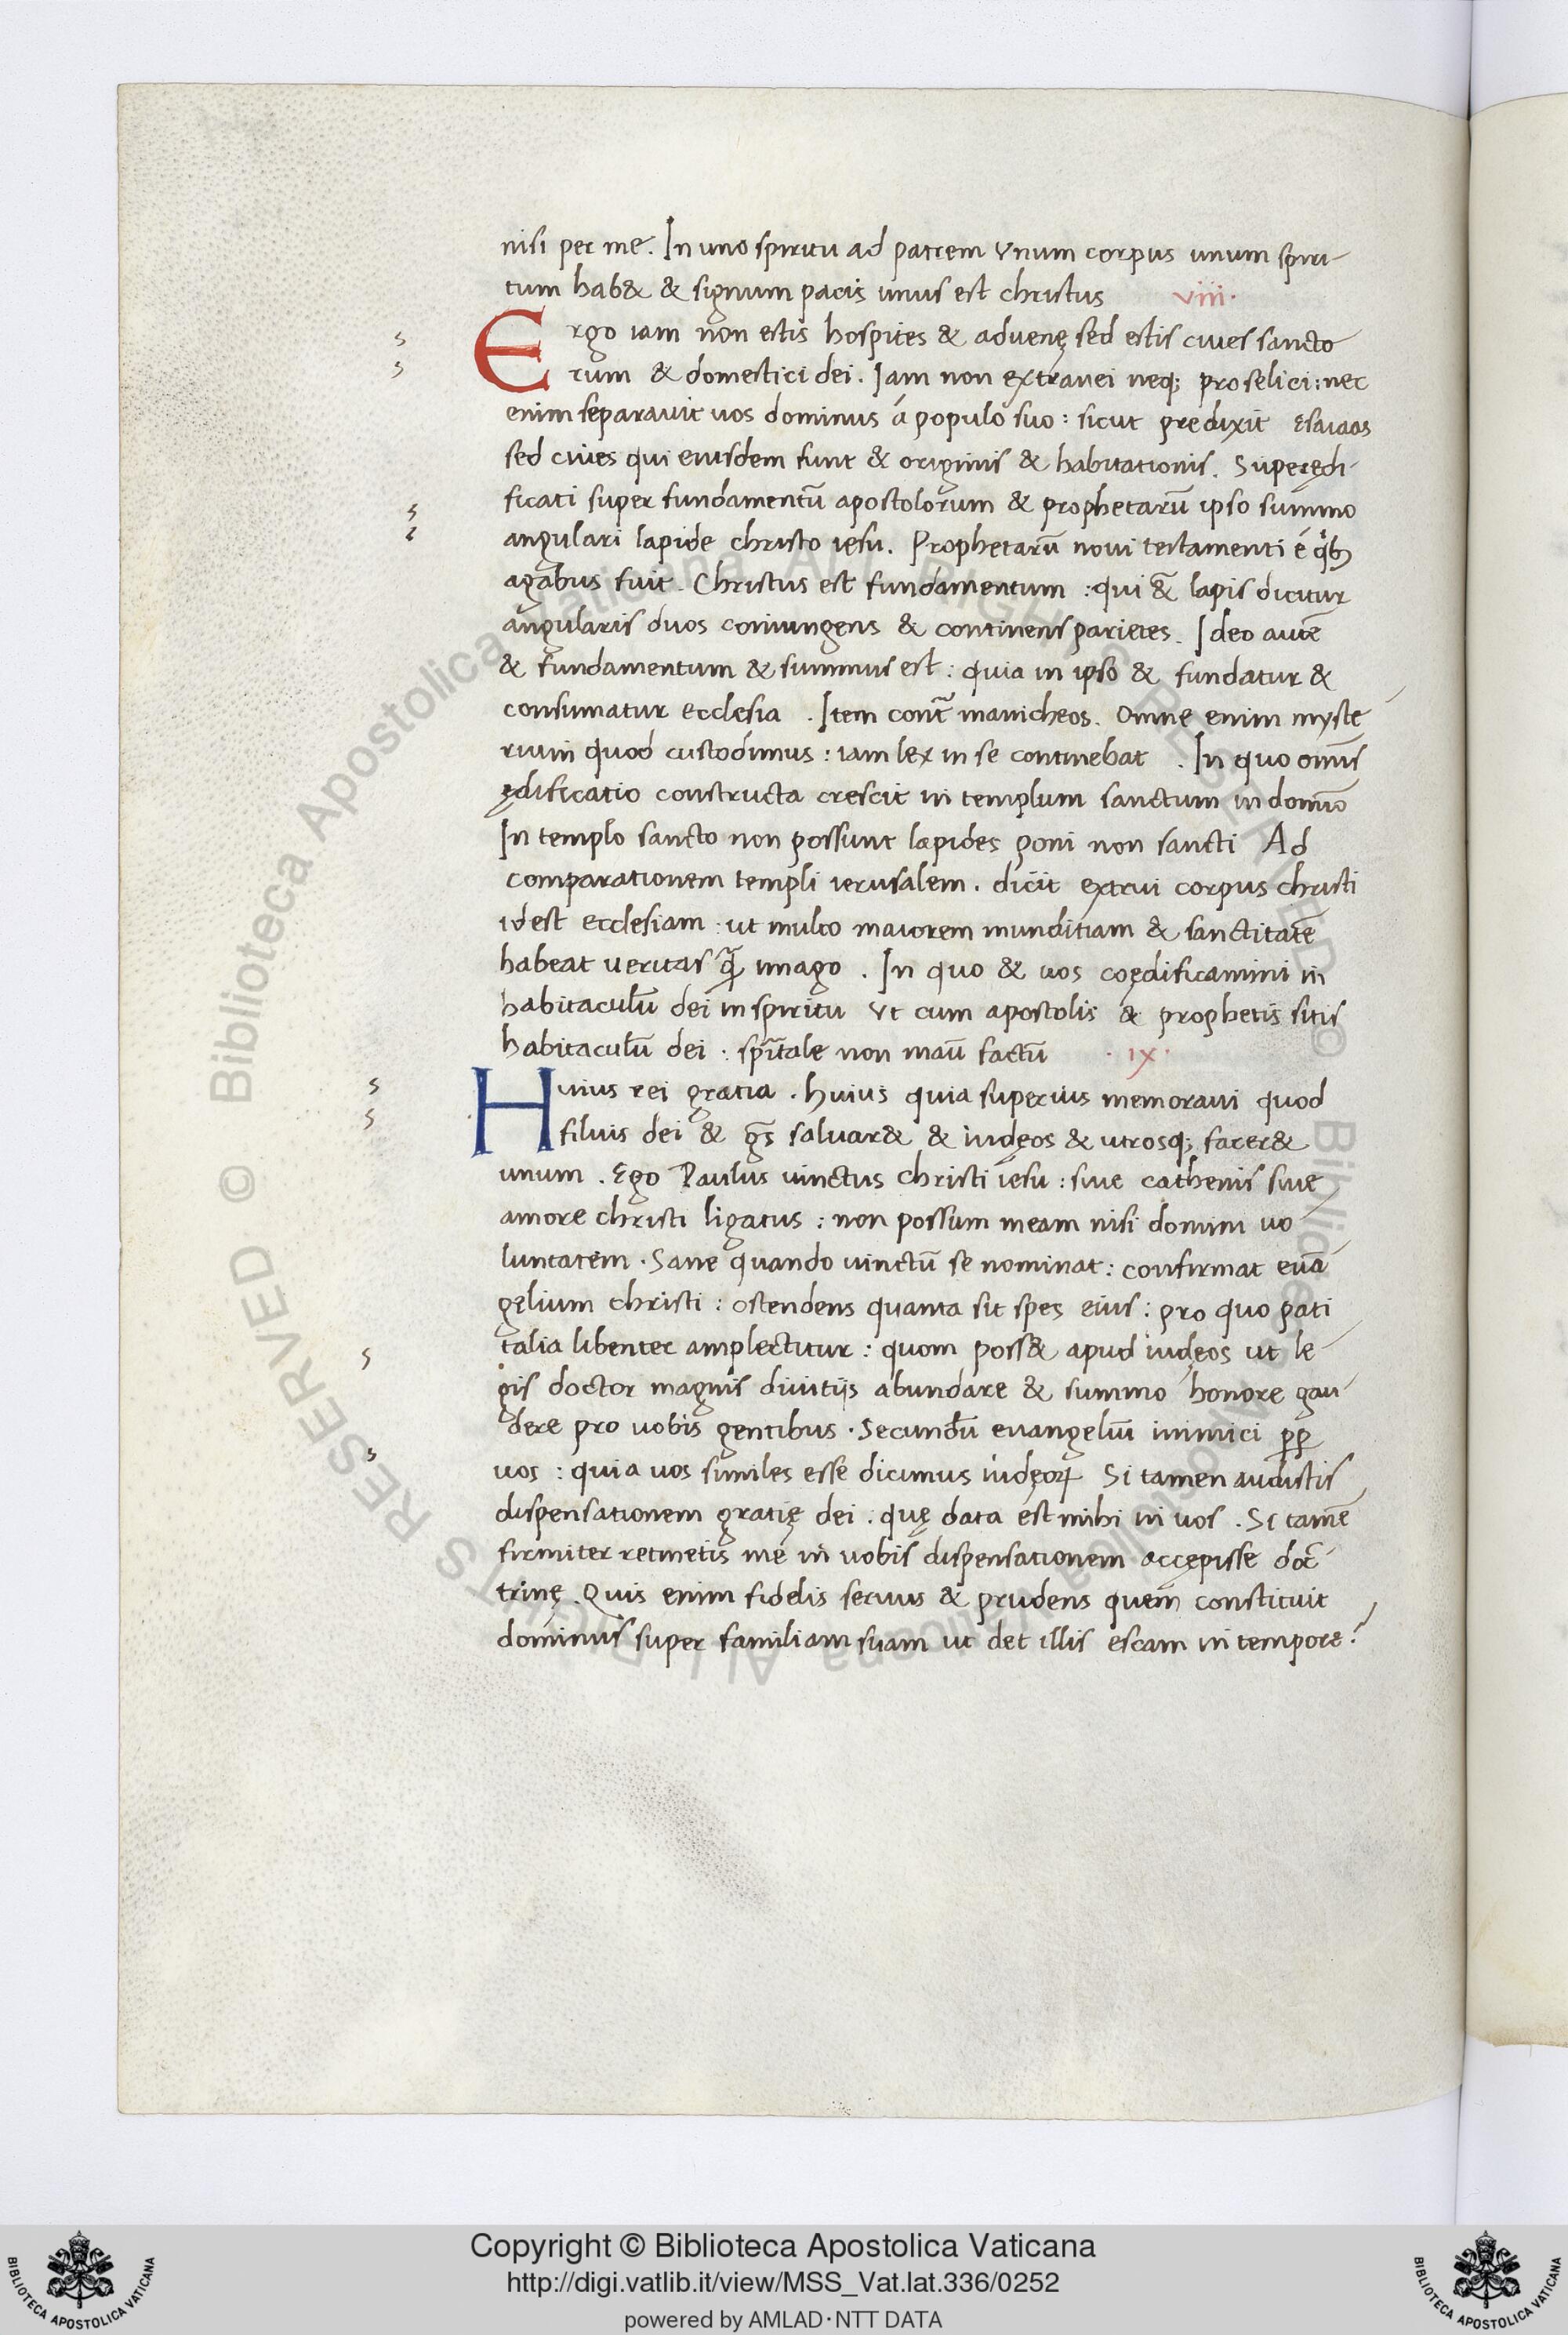 nisi per me. In uno spiritu ad patrem Vnum corpus unum spiri-
tum hab& & signum pacis unus est christus viii·
Ergo iam non estis hospites & aduenę sed estis ciues sancto
rum & domestici dei. Iam non extranei neq; proselici: nec
enim separauit uos dominus á populo suo: sicut predixit Esaiaas
sed ciues qui eiusdem sunt & originis & habitationis. Superędi-
ficati super fundamentū apostolorum & prophetarū ipso summo
angulari lapide christo iesu. Prophetarū noui testamenti é
agabus fuit. Christus est fundamentum: qui & lapis dicitur
angularis duos coniungens & continens parietes. Ideo autē
& fundamentum & summus est: quia in ipso & fundatur &
consumatur ecclesia. Item cont̄ manicheos. Omne enim myste
rium quod custodimus: iam lex in se continebat. In quo om̄is
ędificatio constructa crescit in templum sanctum in domīo
In templo sancto non possunt lapides poni non sancti Ad
comparationem templi ierusalem. dicit extrui corpus christi
idest ecclesiam: ut multo maiorem munditiam & sanctitatē
habeat ueritas q̄ imago. In quo & uos coędificamini in
habitaculū dei in spiritu Vt cum apostolis & prophetis sitis
habitaculū dei: spīrtale non maū factū · ix·
Huius rei gratia. huius quia superius memoraui quod
filius dei & gēs saluar& & iudęos & utrosq; facer&
unum. Ego Paulus uinctus christi iesu: siue cathenis siue
amore christi ligatus: non possum meam nisi domini uo
luntatem. Sane quando uinctū se nominat: confirmat euā
gęlium christi: ostendens quanta sit spes eius: pro quo pati
talia libenter amplectitur: quom poss& apud iudęos ut le-
gis doctor magnis diuitijs abundare & summo honore gau-
dere pro uobis gentibus. Secundū euangeliū inimici pp
uos: quia uos similes esse dicimus iudęoꝝ Si tamen audistis
dispensationem gratię dei. quę data est mihi in uos. Si tamē
firmiter retinetis me in uobis dispensationem accępisse doc̄
trinę. Quis enim fidelis seruus & prudens quem constituit
dominus super familiam suam ut det illis escam in tempore?
Copyright © Biblioteca Apostolica Vaticana
http://digi.vatlib.it/view/MSS_Vat.lat.336/0252
powered by AMLAD·NTT DATA